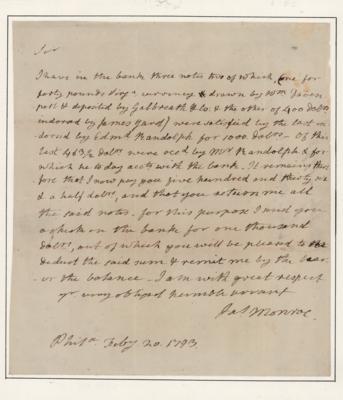 Sir
I have in the bank three notes two of which (one for
forty pounds Virga. currency & drawn by Wm.
& deposited by Galbreath & Co. & the other of 400 dolrs.
indorsed by James Yard) were satisfied by the last in
dorsed by Edmd. Randolph for 1000 dolrs. - Of this
last 463½ dolrs. were by Mr. Randolph & for
which he to day accts. with the bank. It remains there
fore that I now pay you five hundred and thirty six
& a half dolrs., and that you return me all
the said notes. for this purpose I send you
a check on the bank for one thousand
dolrs., out of which you will be pleased to
deduct the said sum & remit me by the bear
er the balance. I am with great respect
yr. very obliged humble servant
Jas. Monroe
Phila. Feby 20. 1793